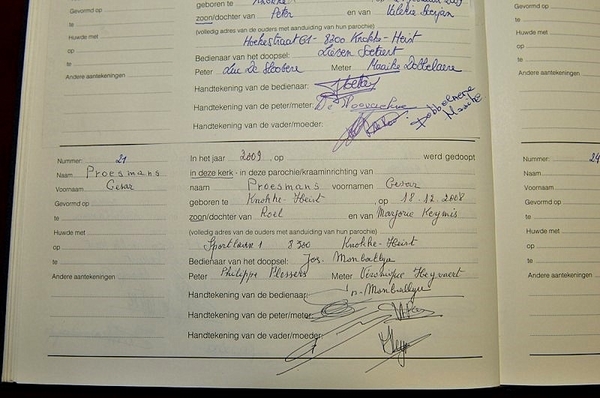 geboren te Knokke
Gevormd op
te
zoon/dochter van Peter en van Valérie
(volledig adres van de ouders met aanduiding van hun parochie)
Huwde met
Hoekestraat 61 - 8300 Knokke-Heist
op
Bedienaar van het doopsel:
te
Peter Luc De Meter Maaike Dobbelaere
Andere aantekeningen
Handtekening van de bedienaar:
Handtekening van de peter/meter:
Handtekening van de vader/moeder:
Dobbelaere
Maaike
Nummer: 21
In het jaar 2009, op werd gedoopt
Naam Proesmans
in deze kerk - in deze parochie/kraaminrichting van
Voornaam Cesar
naam Proesmans voornamen Cesar
Gevormd op
geboren te Knokke-Heist, op 18.12.2008
te
zoon/dochter van Roel en van Marjorie Keymis
Huwde met
(volledig adres van de ouders met aanduiding van hun parochie)
op
Sportlaan 1 8300 Knokke-Heist
te
Bedienaar van het doopsel: Jos. Monballyu
Andere aantekeningen
Peter Philippe Plessers Meter Véronique Heyvaert
Handtekening van de bedienaar: Monballyu
Handtekening van de peter/meter:
Handtekening van de vader/moeder:
Gevormd op
te
Huwde met
op
te
Andere aantekeningen
Nummer: 24
Naam
Voornaam
Gevormd op
te
Huwde met
op
te
Andere aantekeningen